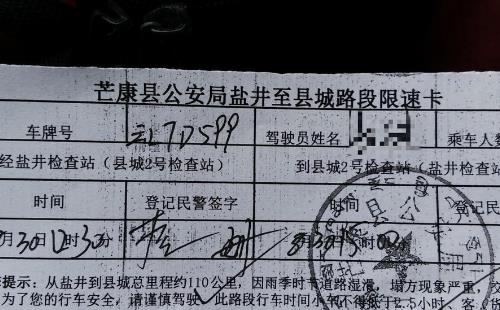 芒康县公安局盐井至县城路段限速卡
车牌号 云17D599 驾驶员姓名 乘车人数
经盐井检查站（县城2号检查站） 到县城2号检查站（盐井检查
时间 登记民警签字 时间 登记民
月30日12时30分 8月30日15时00
提示：从盐井到县城总里程约110公里，因雨季时节道路湿滑，塌方现象严重，交
为了您的行车安全，请谨慎驾驶，此路段行车时间小车不得低于2.5小时、客、货